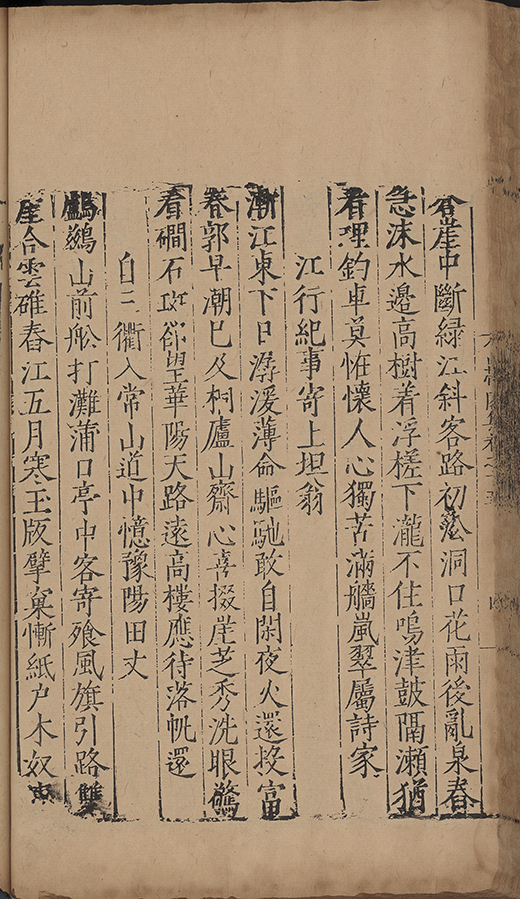 崖中斷緑江斜客路初洞口花雨後亂泉春
急沫水邊高樹着浮槎下瀧不住鳴津鼓隔瀬猶
看理釣車莫恠懷人心獨苦滿艢嵐翠屬詩家
江行紀事寄上坦翁
漸江東下日潺湲薄命驅馳敢自閑夜火還投富
春郭早潮已及桐廬山齋心喜掇崖芝秀洗眼驚
看磵石斑郤望華陽天路遠高樓應待落帆還
自三衢入常山道中憶豫陽田丈
鸕鷀山前舩打灘蒲口亭中客寄飱風旗引路雙
崖合雲碓舂江五月寒玉版擘窠慚紙户木奴